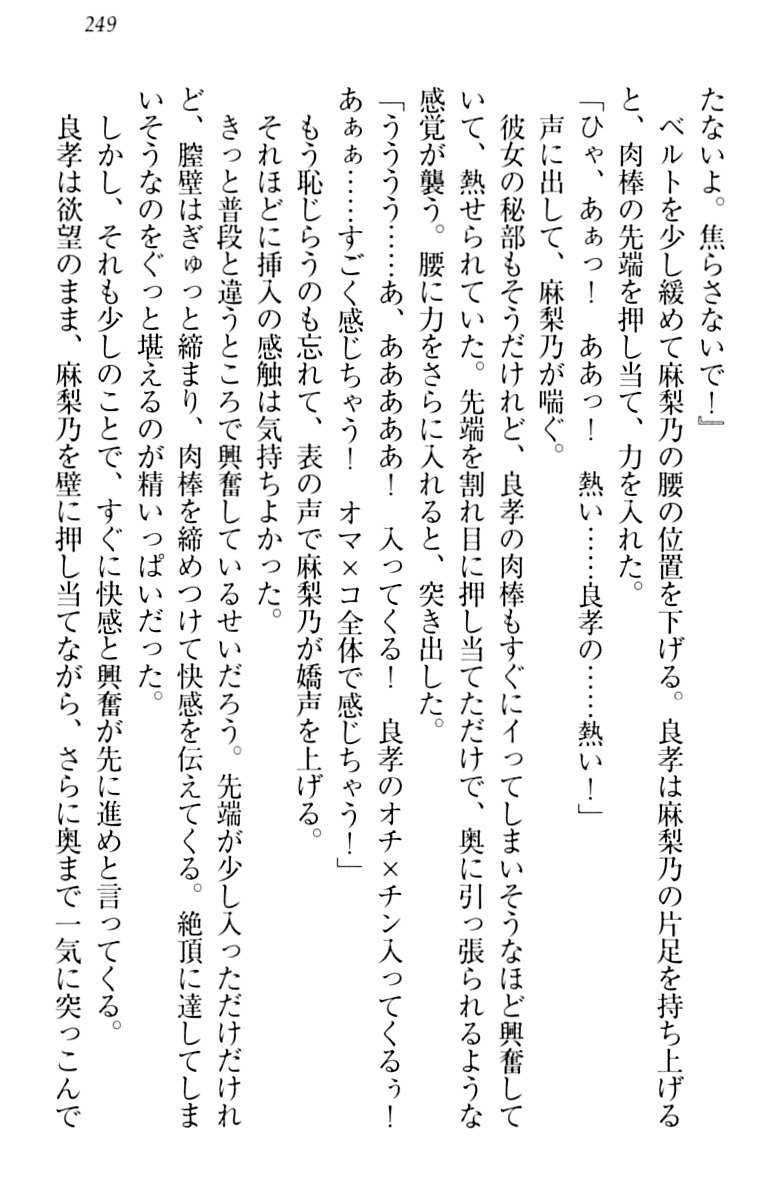 249
たないよ。焦らさないで！』
ベルトを少し緩めて麻梨乃の腰の位置を下げる。良孝は麻梨乃の片足を持ち上げる
と、肉棒の先端を押し当て、力を入れた。
「ひゃ、あぁっ！　ああっ！　熱い……良孝の……熱い！」
声に出して、麻梨乃が喘ぐ。
彼女の秘部もそうだけれど、良孝の肉棒もすぐにイってしまいそうなほど興奮して
いて、熱せられていた。先端を割れ目に押し当てただけで、奥に引っ張られるような
感覚が襲う。腰に力をさらに入れると、突き出した。
「うううう……あ、あああああ！　入ってくる！　良孝のオチ×チン入ってくるぅ！
あぁぁ……すごく感じちゃう！　オマ×コ全体で感じちゃう！」
もう恥じらうのも忘れて、表の声で麻梨乃が嬌声を上げる。
それほどに挿入の感触は気持ちよかった。
きっと普段と違うところで興奮しているせいだろう。先端が少し入っただけだけれ
ど、膣壁はぎゅっと締まり、肉棒を締めつけて快感を伝えてくる。絶頂に達してしま
いそうなのをぐっと堪えるのが精いっぱいだった。
しかし、それも少しのことで、すぐに快感と興奮が先に進めと言ってくる。
良孝は欲望のまま、麻梨乃を壁に押し当てながら、さらに奥まで一気に突っこんで